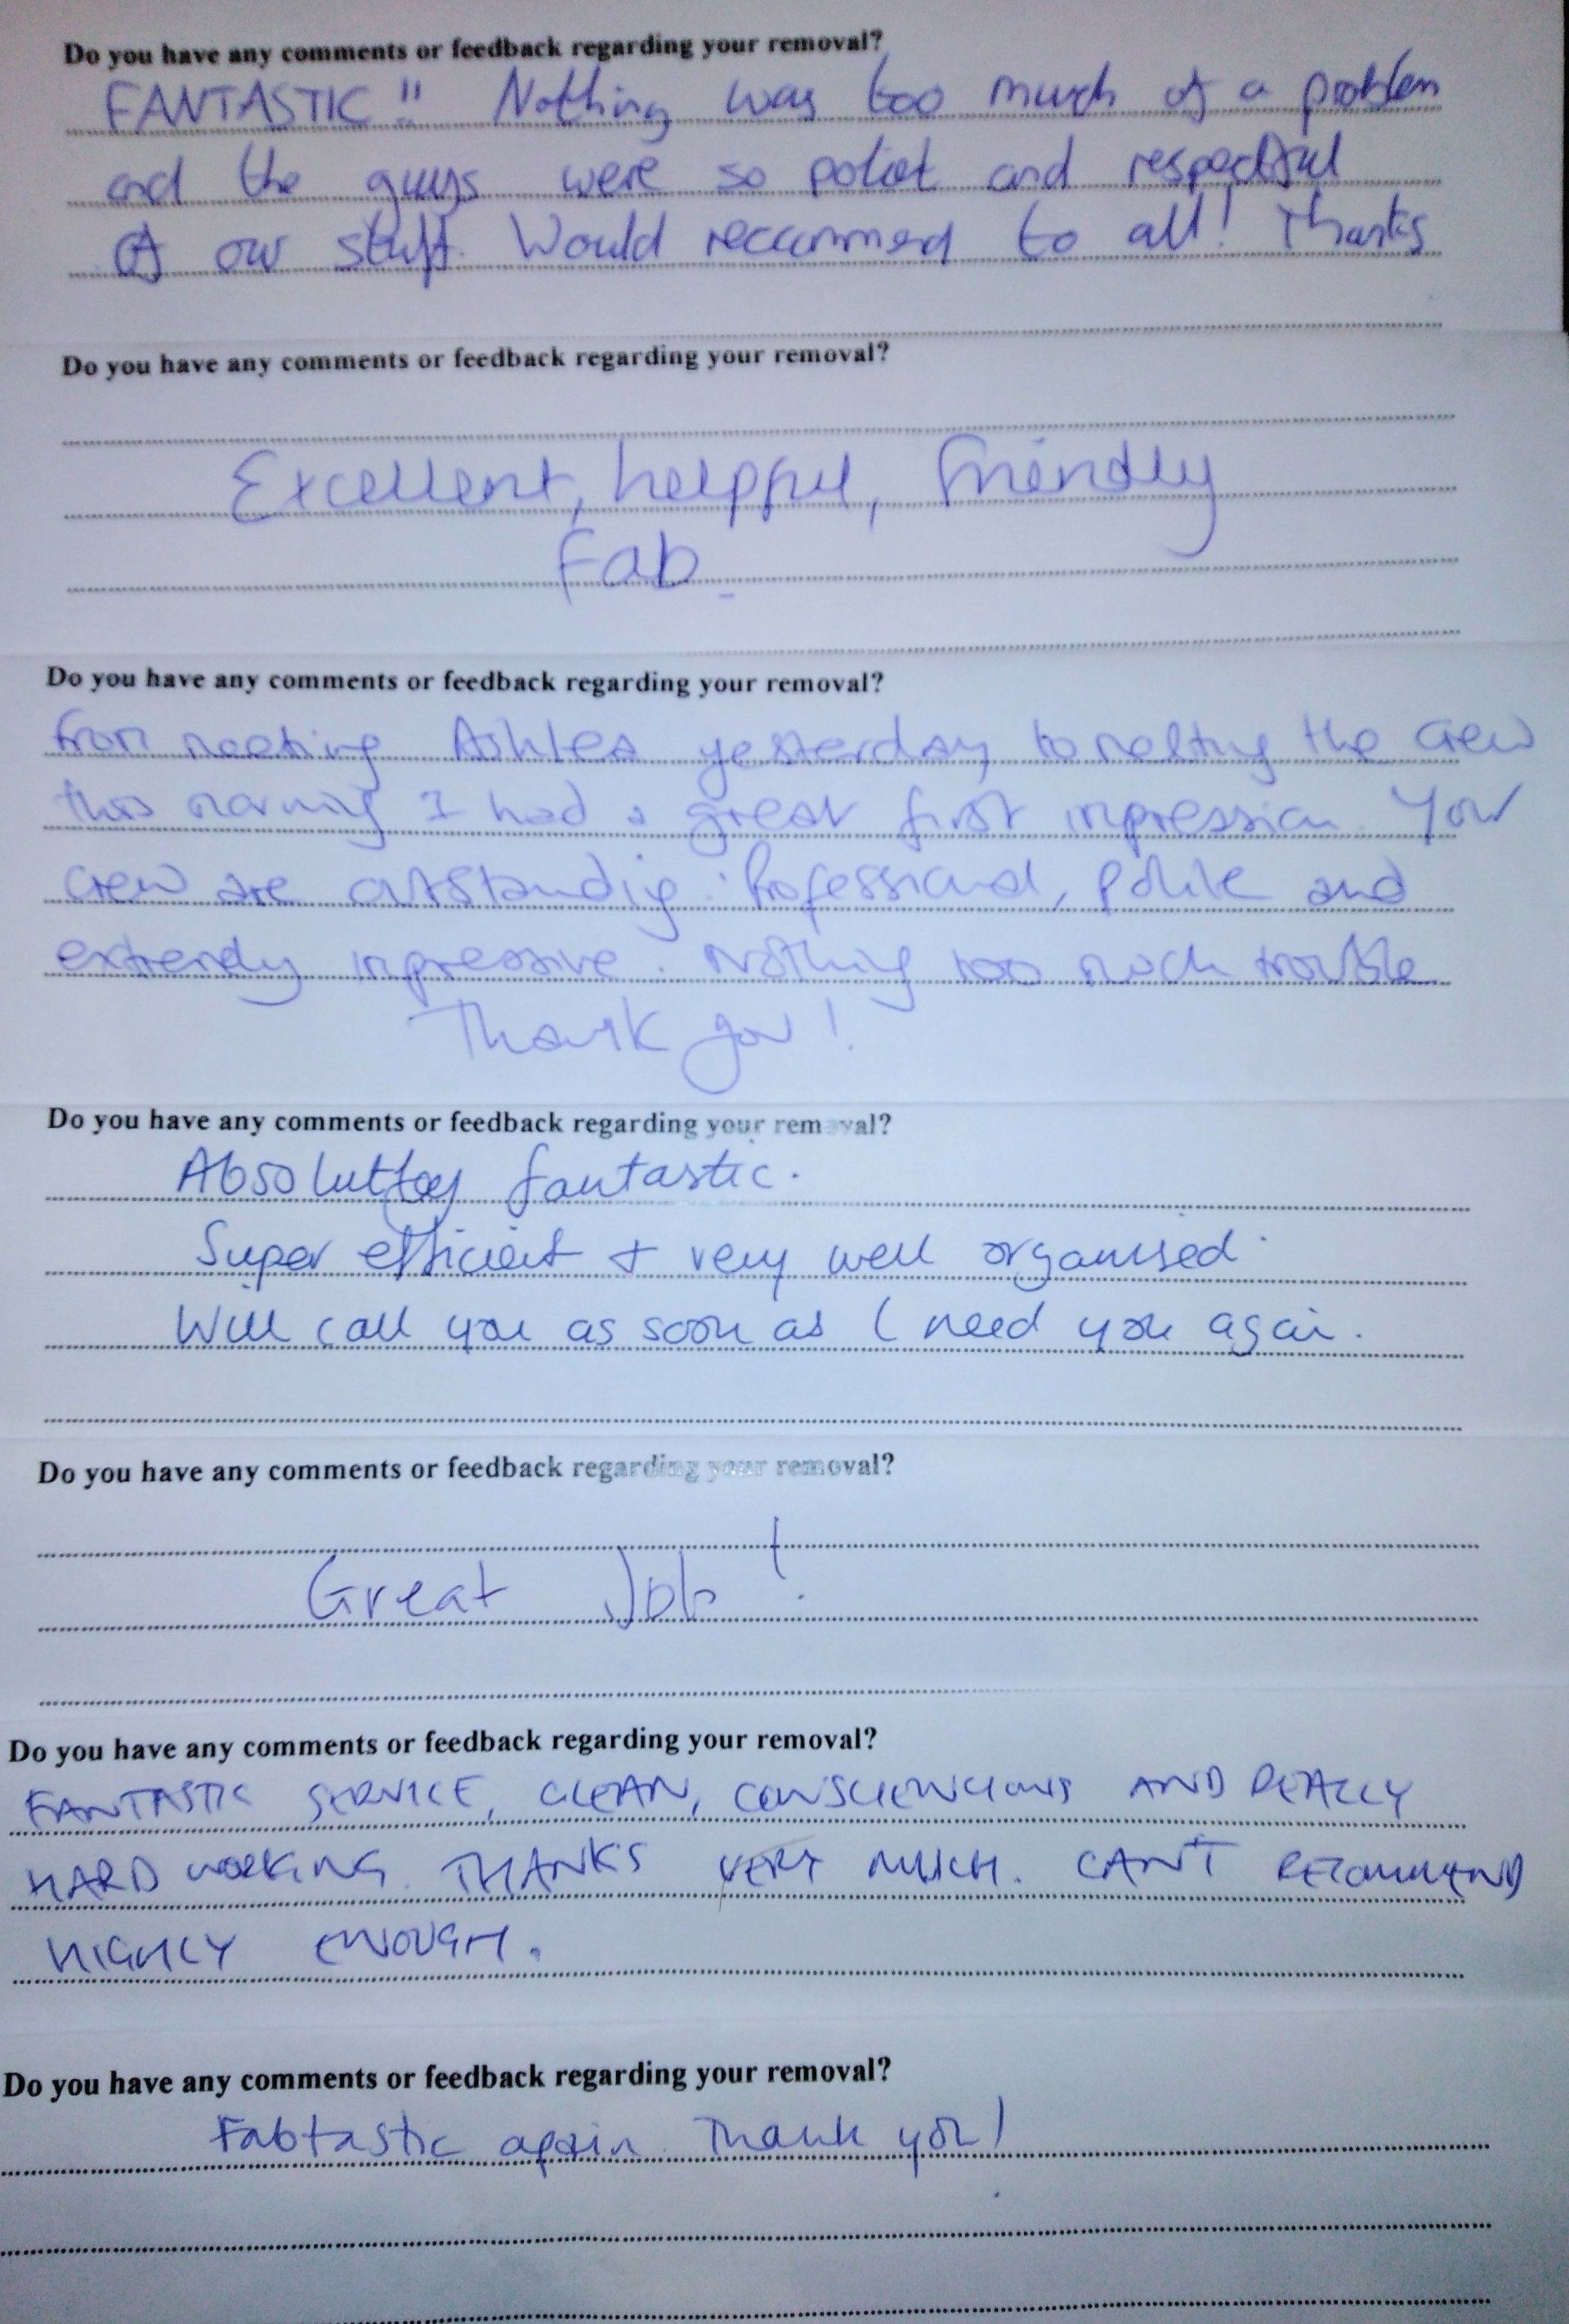 Do you have any comments or feedback regarding your removal?
FANTASTIC!! Nothing was too much of a problem
and the guys were so poliet and respectful
of our stuff. Would reccommend to all! Thanks
Do you have any comments or feedback regarding your removal?
Excellent, helpful, friendly
Fab.
Do you have any comments or feedback regarding your removal?
from meeting yesterday to meeting the crew
this morning I had a great first impression. Your
crew are outstanding. Professional, polite and
extremely impressive. Nothing too much trouble
Thank you!
Do you have any comments or feedback regarding your rem val?
Absolutley fantastic.
Super efficient + very well organised.
Will call you as soon as I need you again.
Do you have any comments or feedback regarding your removal?
Great Job!
Do you have any comments or feedback regarding your removal?
FANTASTIC SERVICE, CLEAN, CONSCIENCIOUS AND REALLY
HARD WORKING. THANKS VERY MUCH. CAN'T RECOMMEND
HIGHLY ENOUGH.
Do you have any comments or feedback regarding your removal?
Fabtastic again. Thank you!